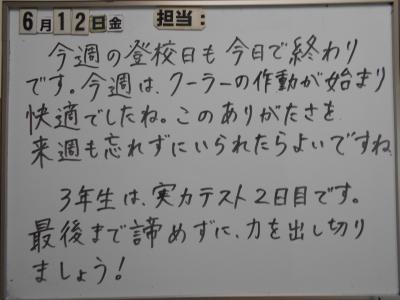 6月12日金 担当:
今週の登校日も今日で終わり
です。今週は、クーラーの作動が始まり
快適でしたね。このありがたさを
来週も忘れずにいられたらよいですね
3年生は、実力テスト2日目です。
最後まで諦めずに、力を出し切り
ましょう!